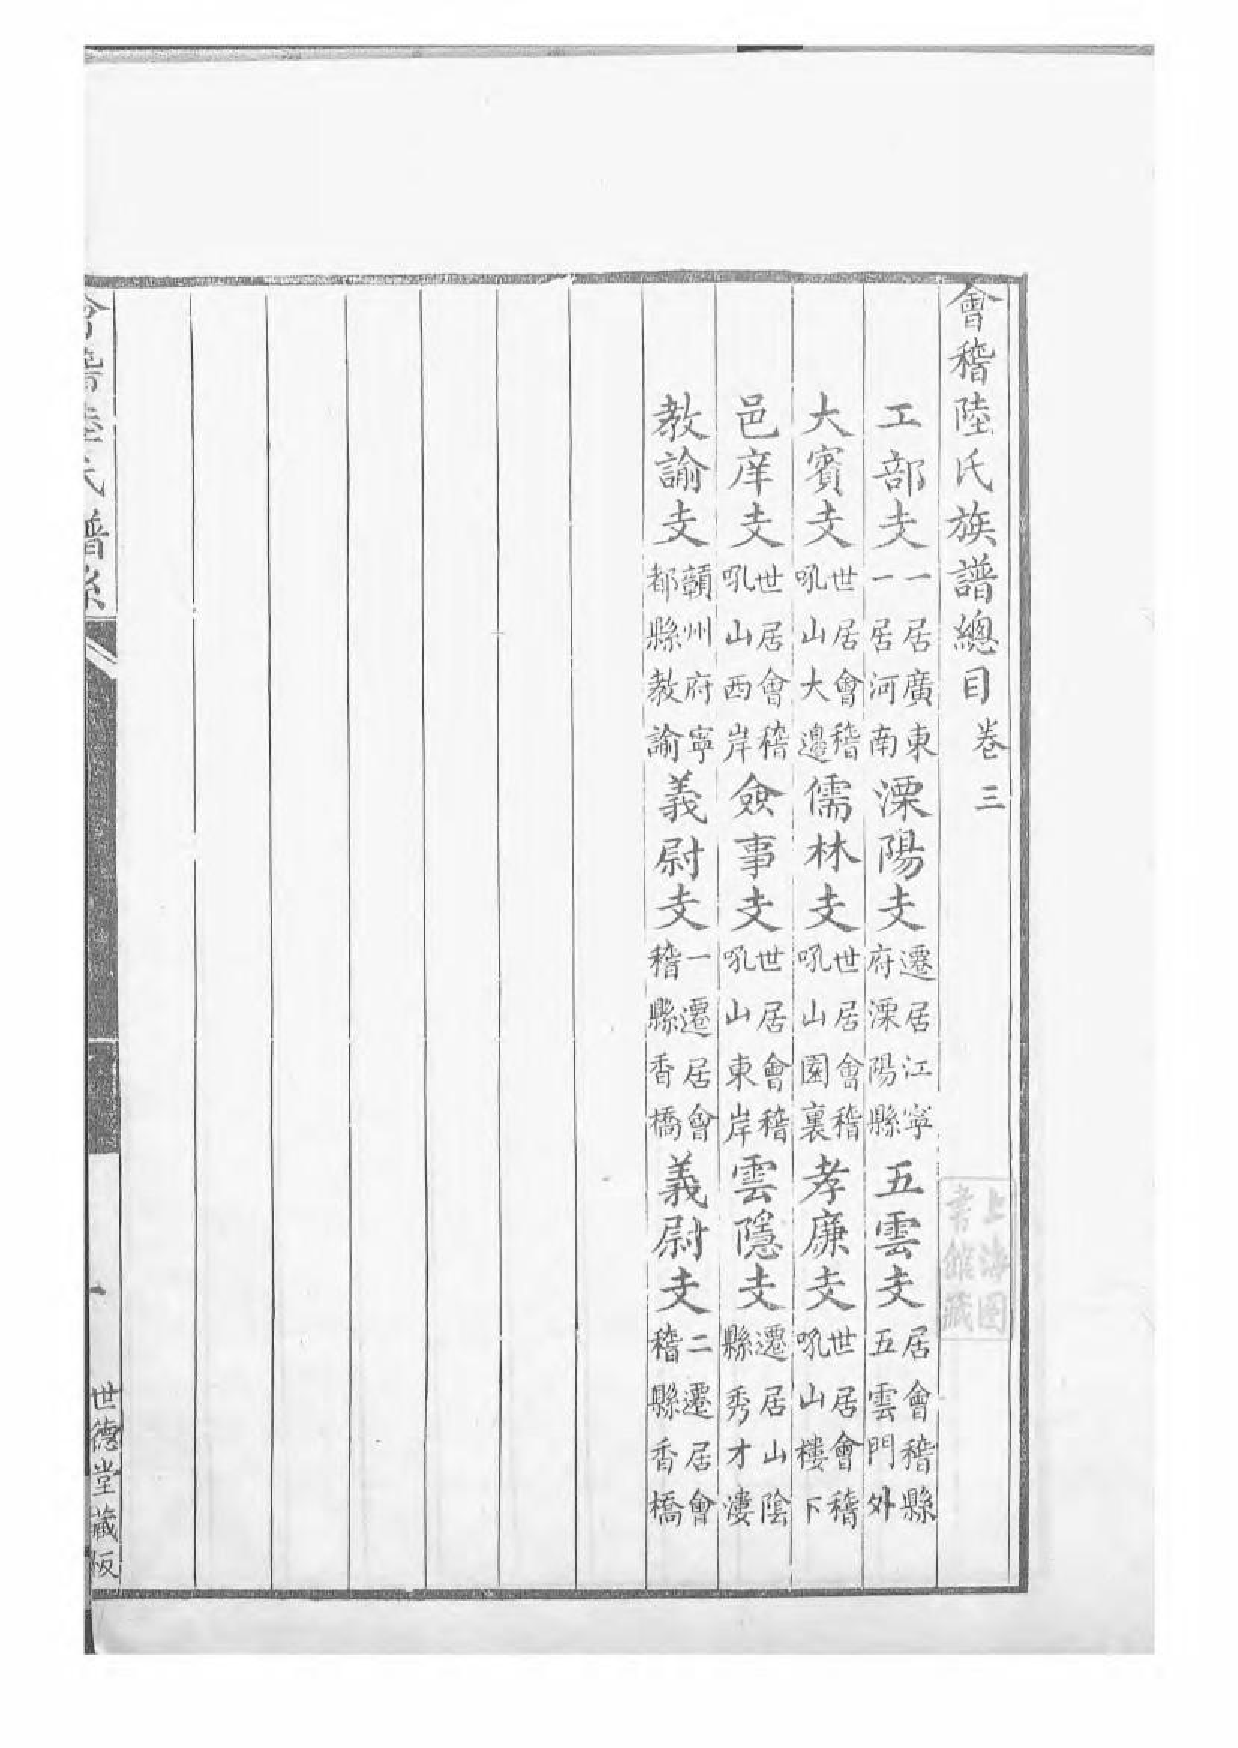 會稽陸氏族譜總目 卷三
工部支 一居廣東一居河南 溧陽支 遷居江寧府溧陽縣 五雲支 居會稽縣五雲門外
大賓支 世居會稽吼山大邊 儒林支 世居會稽吼山園裏 孝廉支 世居會稽吼山樓下
邑庠支 世居會稽吼山西岸 僉事支 世居會稽吼山東岸 雲隱支 遷居山陰縣秀才漊
教諭支 贛州府寧都縣教諭 義尉支 一遷居會稽縣香橋 義尉支 二遷居會稽縣香橋
會稽陸氏譜系
一
世德堂藏板
上海图书館藏